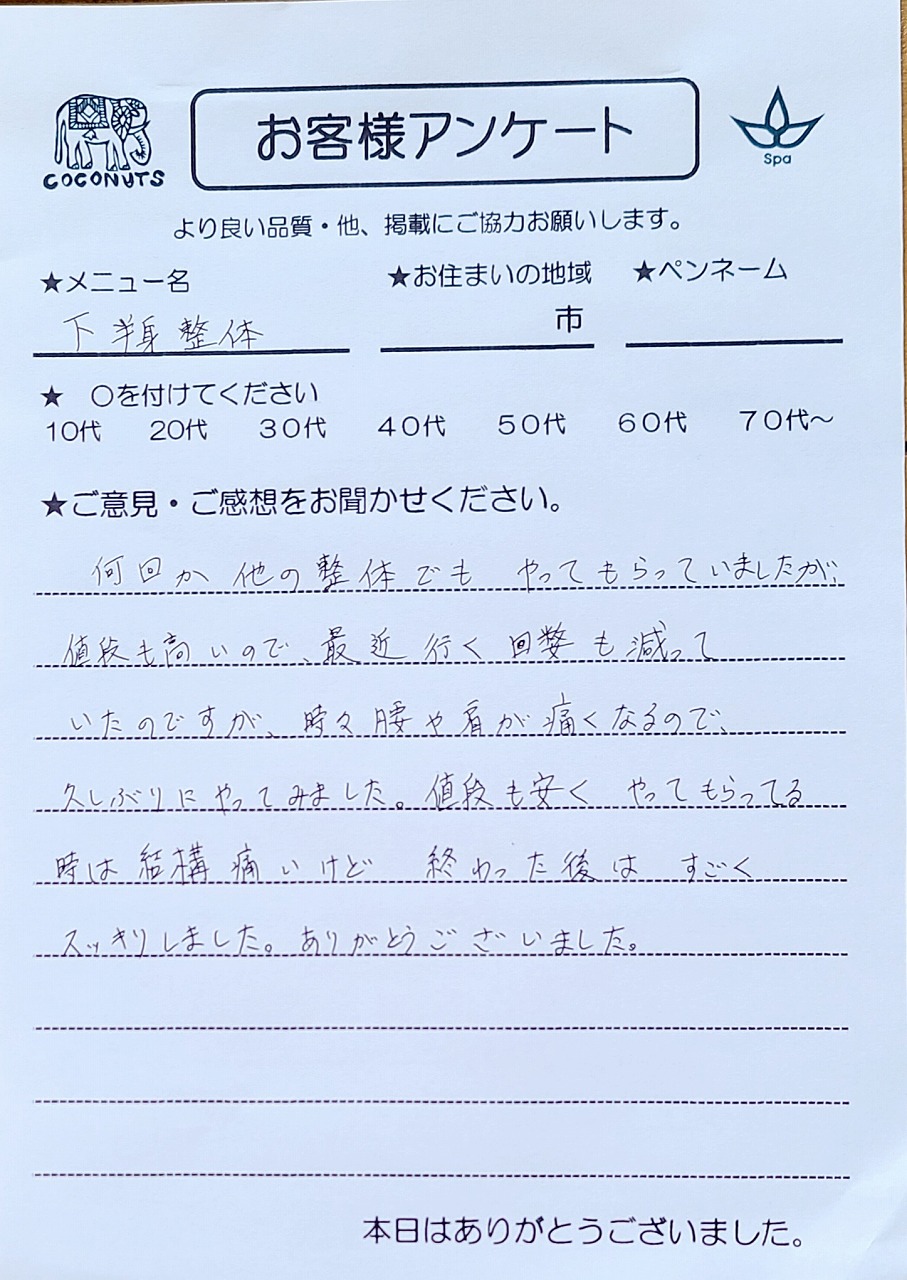 COCONUTS
お客様アンケート
Spa
より良い品質・他、掲載にご協力お願いします。
★メニュー名 ★お住まいの地域 ★ペンネーム
下半身整体 市
★ ○を付けてください
10代 20代 30代 40代 50代 60代 70代～
★ご意見・ご感想をお聞かせください。
何回か他の整体でも やってもらっていましたが、
値段も高いので、最近行く回数も減って
いたのですが、時々腰や肩が痛くなるので、
久しぶりにやってみました。値段も安く やってもらってる
時は結構痛いけど 終わった後は すごく
スッキリしました。ありがとうございました。
本日はありがとうございました。